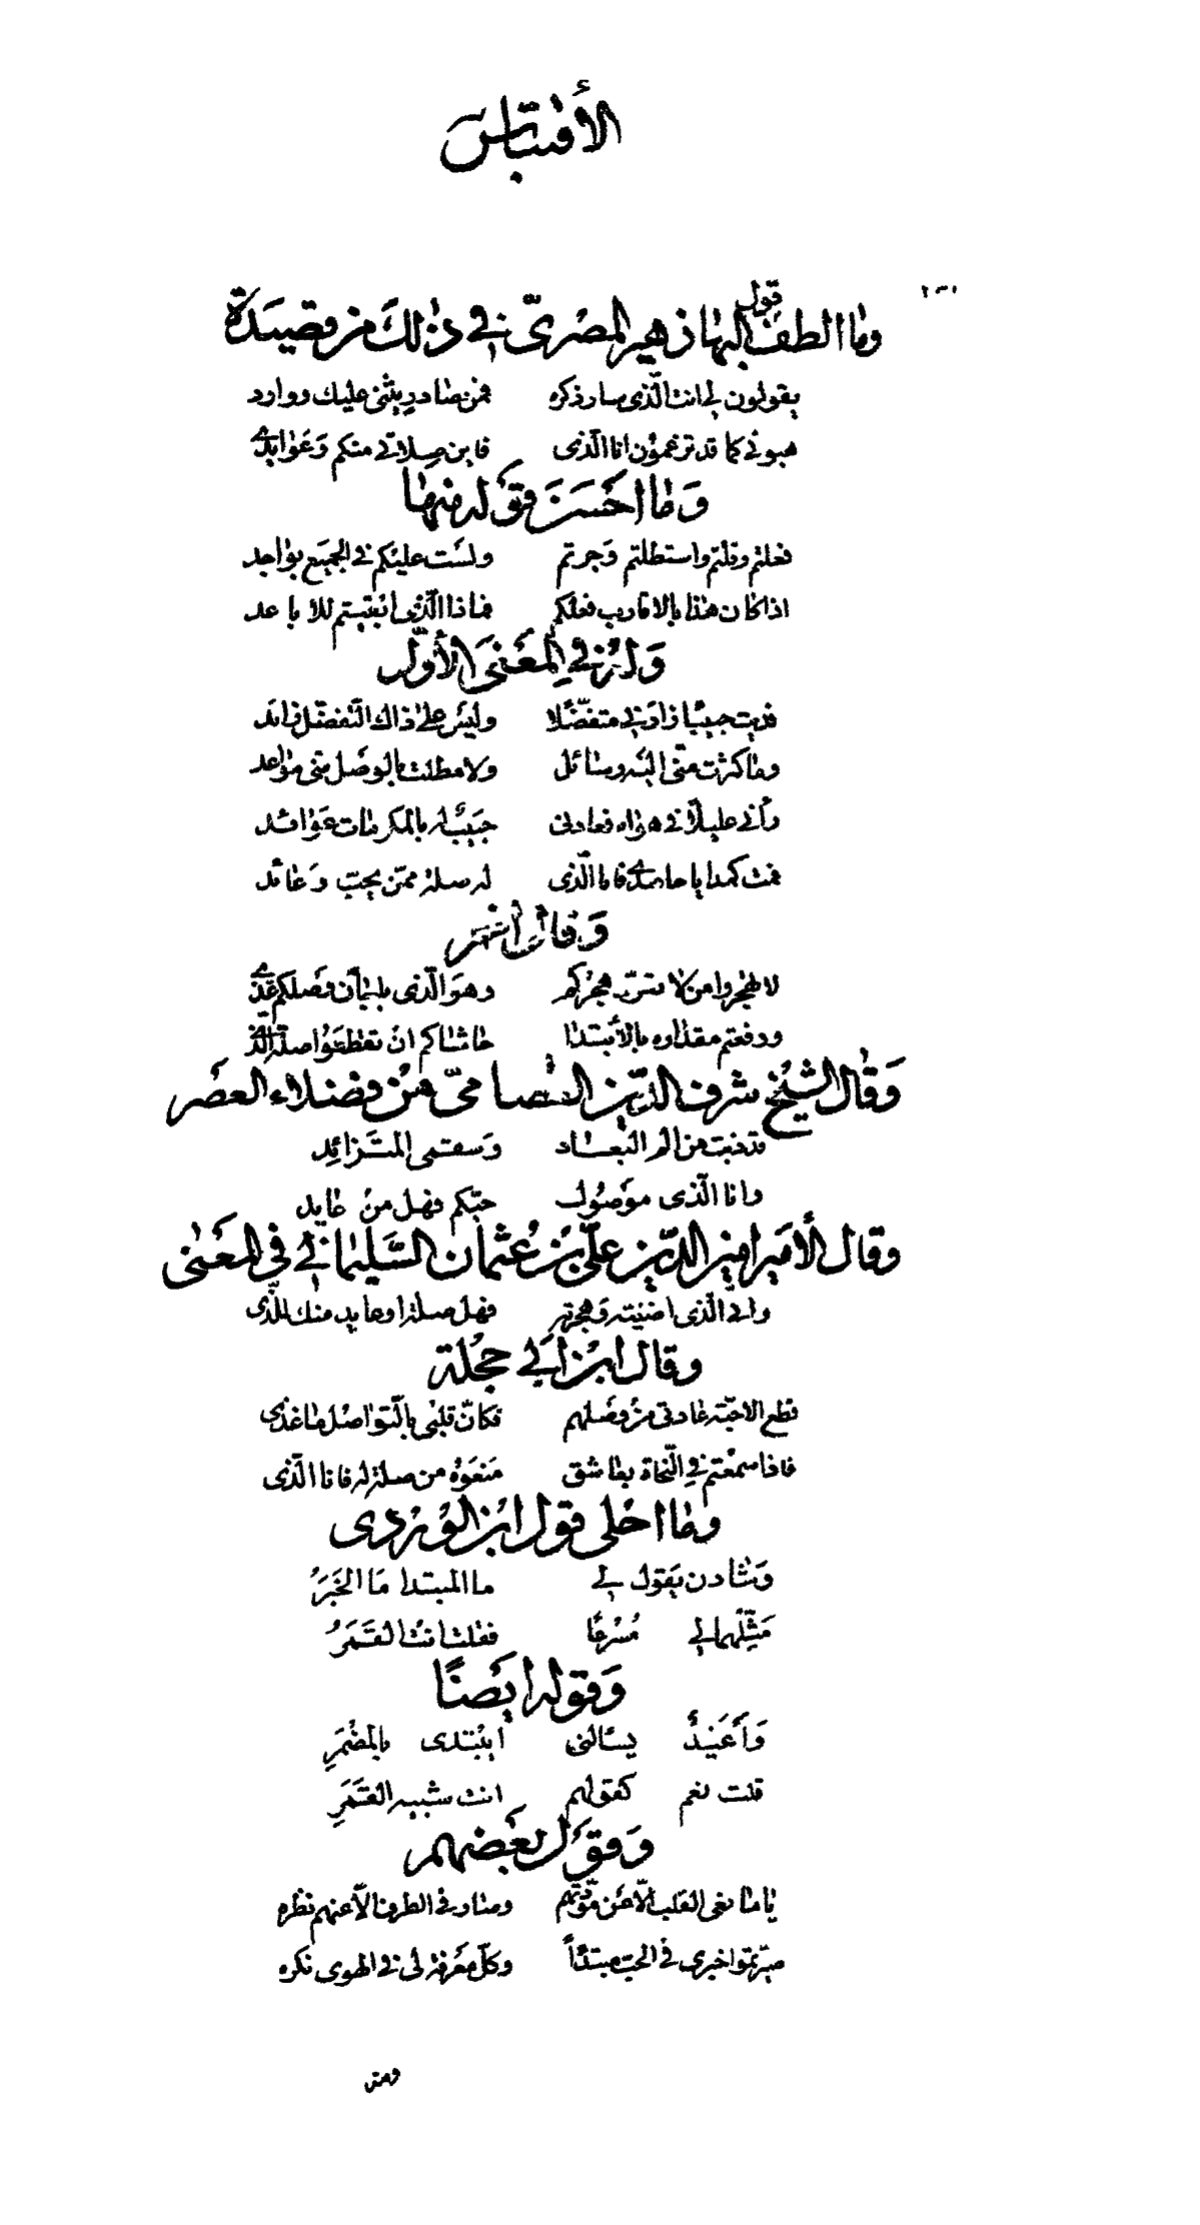 الأقتباس
وما الطف قول البها زهير المصرىّ فى ذلك من قصيدة
يقولون لى انت الّذى سار ذكره فمن صادر يثنى عليك ووارد
هبونى كما قد تزعمون انا الّذى فاين صلاتى منكم وعوايدى
وما احسن قوله منها
فعلتم وقلتم واستطلتم وجرتم ولست عليكم فى الجميع بواجد
اذا كان هذا بالاقارب فعلكم فماذا الّذى ابقيتم للاباعد
وله فى المعنى الأوّل
فديت حبيبًا زارنى متفضّلا وليس على ذاك التّفضّل زائد
وما كثرت منّى اليه وسائل ولا مطلت بالوصل منى مواعد
رأنى عليلًا فى هواه فعادنى حبيب له بالمكرمات عوائد
فمت كمدا يا حاسدى فانا الّذى له صلة ممّن يحبّ وعائد
وقال اخر
لا تهجروا من لا تعوّد هجركم وهو الّذى بلبان وصلكم غذى
ورفعتم مقداره بالأبتدا حاشاكم ان تقطعوا صلة الّذى
وقال الشّيخ شرف الدّين العصامىّ من فضلاء العصر
قد ذبت من الم البعاد وسقمى المتزائد
وانا الّذى موصول حبّكم فهل من عايد
وقال الأمير امين الدّين علىّ بن عثمان السّليمانى فى المعنى
وانى الّذى اضنيته وهجرته فهل صلة او عايد منك للّذى
وقال ابن ابى حجلة
قطع الاحبّة عادتى من وصلهم فكانّ قلبى بالتّواصل ما غذى
فاذا سمعتم فى النّحاة بعاشق منعوه من صلة له فانا الّذى
وما احلى قول ابن الوردى
وشادن يقول لى ما المبتدا ما الخبر
مثّلهما لى مسرعًا فقلت انت القمر
وقوله ايضًا
وأغيد يسالنى ابتدى بالمضمر
قلت نعم كقولهم انت شبيه القمر
وقول بعضهم
يا ما نعى القلب الّا عن مودّتهم وصار فى الطرف الّا عنهم نظره
صيّرتموا خبرى فى الحب مبتدًا وكلّ معرفة لى فى الهوى نكره
ومنه